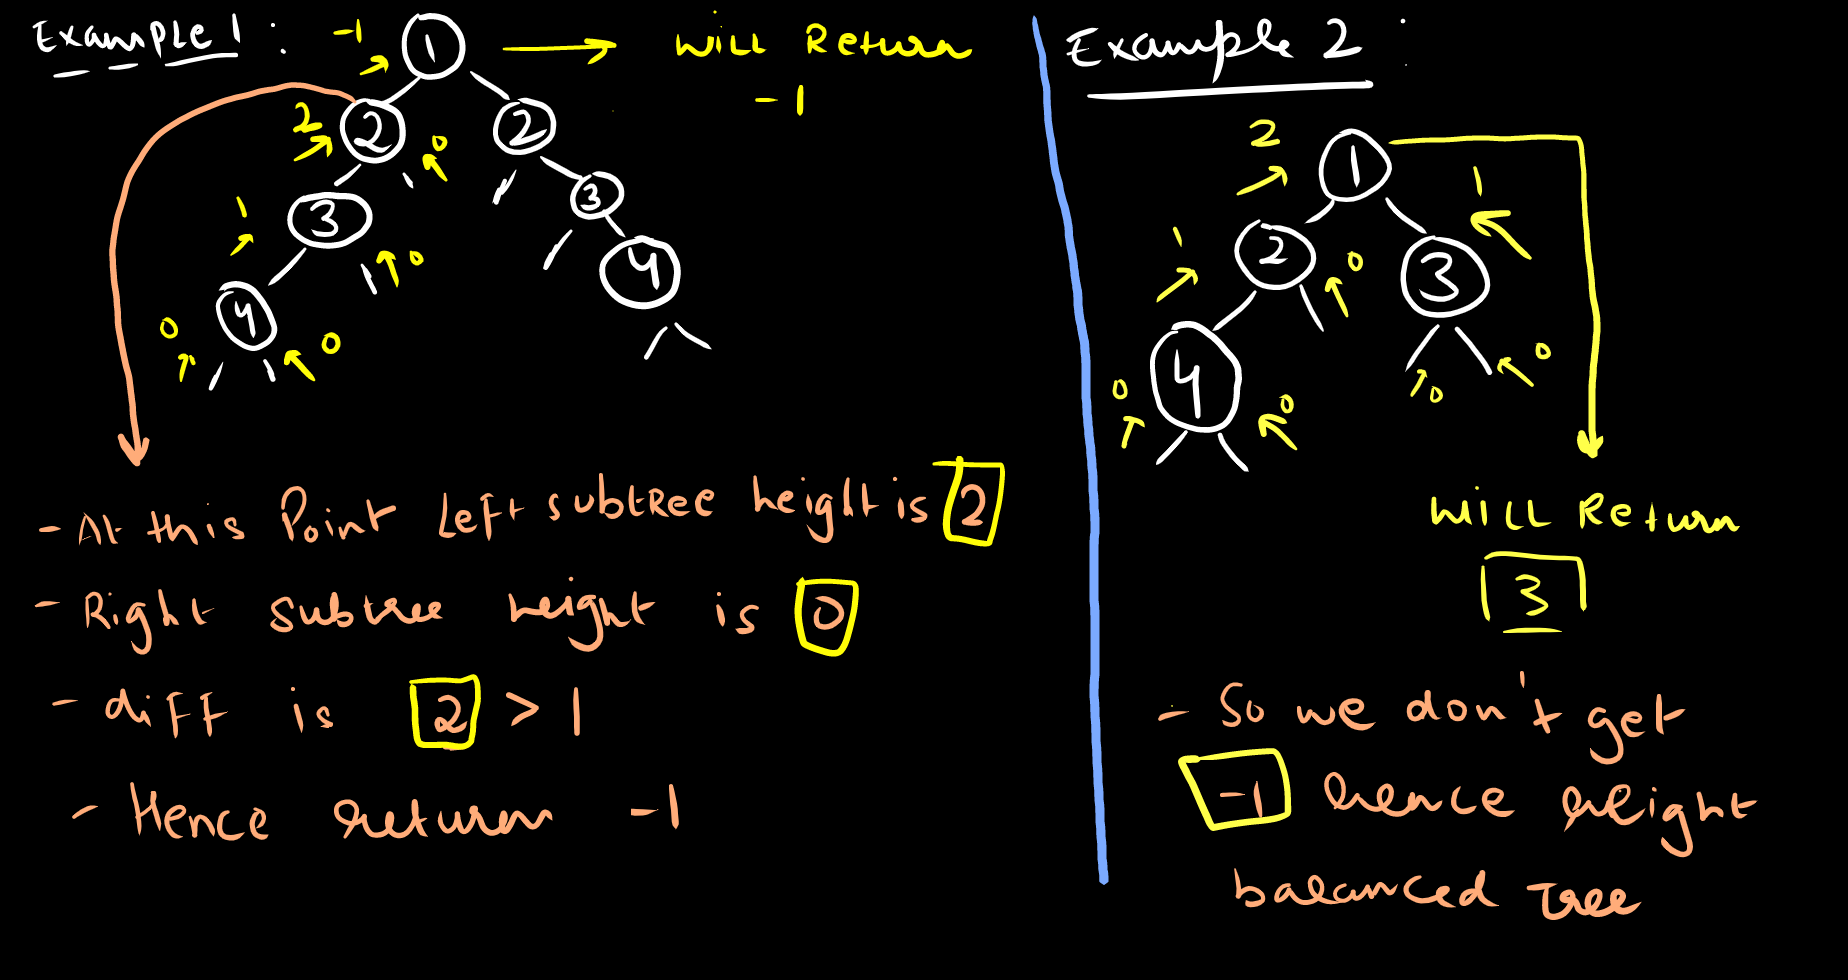 Example 1 :
-1
1
Will Return
-1
2
2
0
2
1
3
0
3
0
4
0
4
- At this Point Left subtree height is 2
- Right subtree height is 0
- diff is 2 > 1
- Hence return -1
Example 2 :
2
1
1
1
2
0
3
0
4
0
0
0
Will Return
3
- So we don't get
-1 hence height
balanced Tree